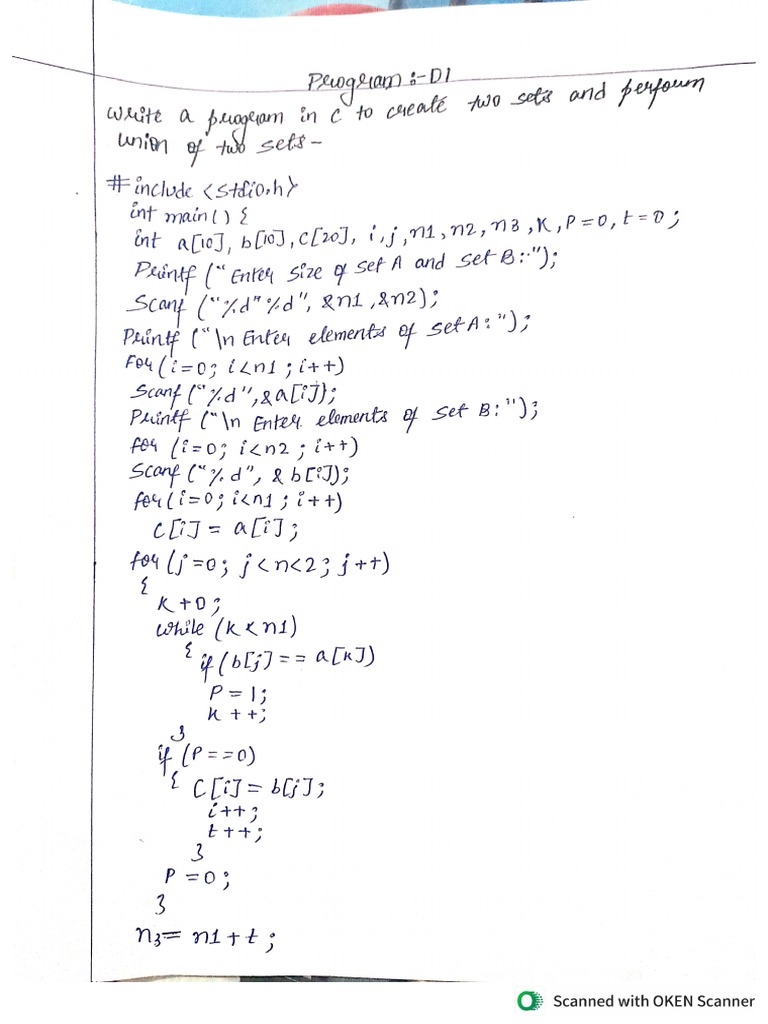 Program :- D1
Write a program in C to create two sets and perform
union of two sets -
# include <stdio.h>
int main() {
int a[10], b[10], C[20], i, j, n1, n2, n3, K, P=0, t=0;
Printf ("Enter Size of Set A and Set B:-");
Scanf ("%d" %d", &n1, &n2);
Printf ("\n Enter elements of Set A:");
For (i=0; i<n1; i++)
Scanf ("%d", &a[i]);
Printf ("\n Enter elements of Set B:");
for (i=0; i<n2; i++)
Scanf ("%d", & b[i]);
for (i=0; i<n1; i++)
C[i] = a[i];
for (j=0; j<n<2; j++)
{
K+0;
while (K<n1)
{ if (b[j] == a[K])
P = 1;
K ++;
}
if (P==0)
{ C[i] = b[j];
i++;
t++;
}
P = 0;
}
n3 = n1 + t;
Scanned with OKEN Scanner